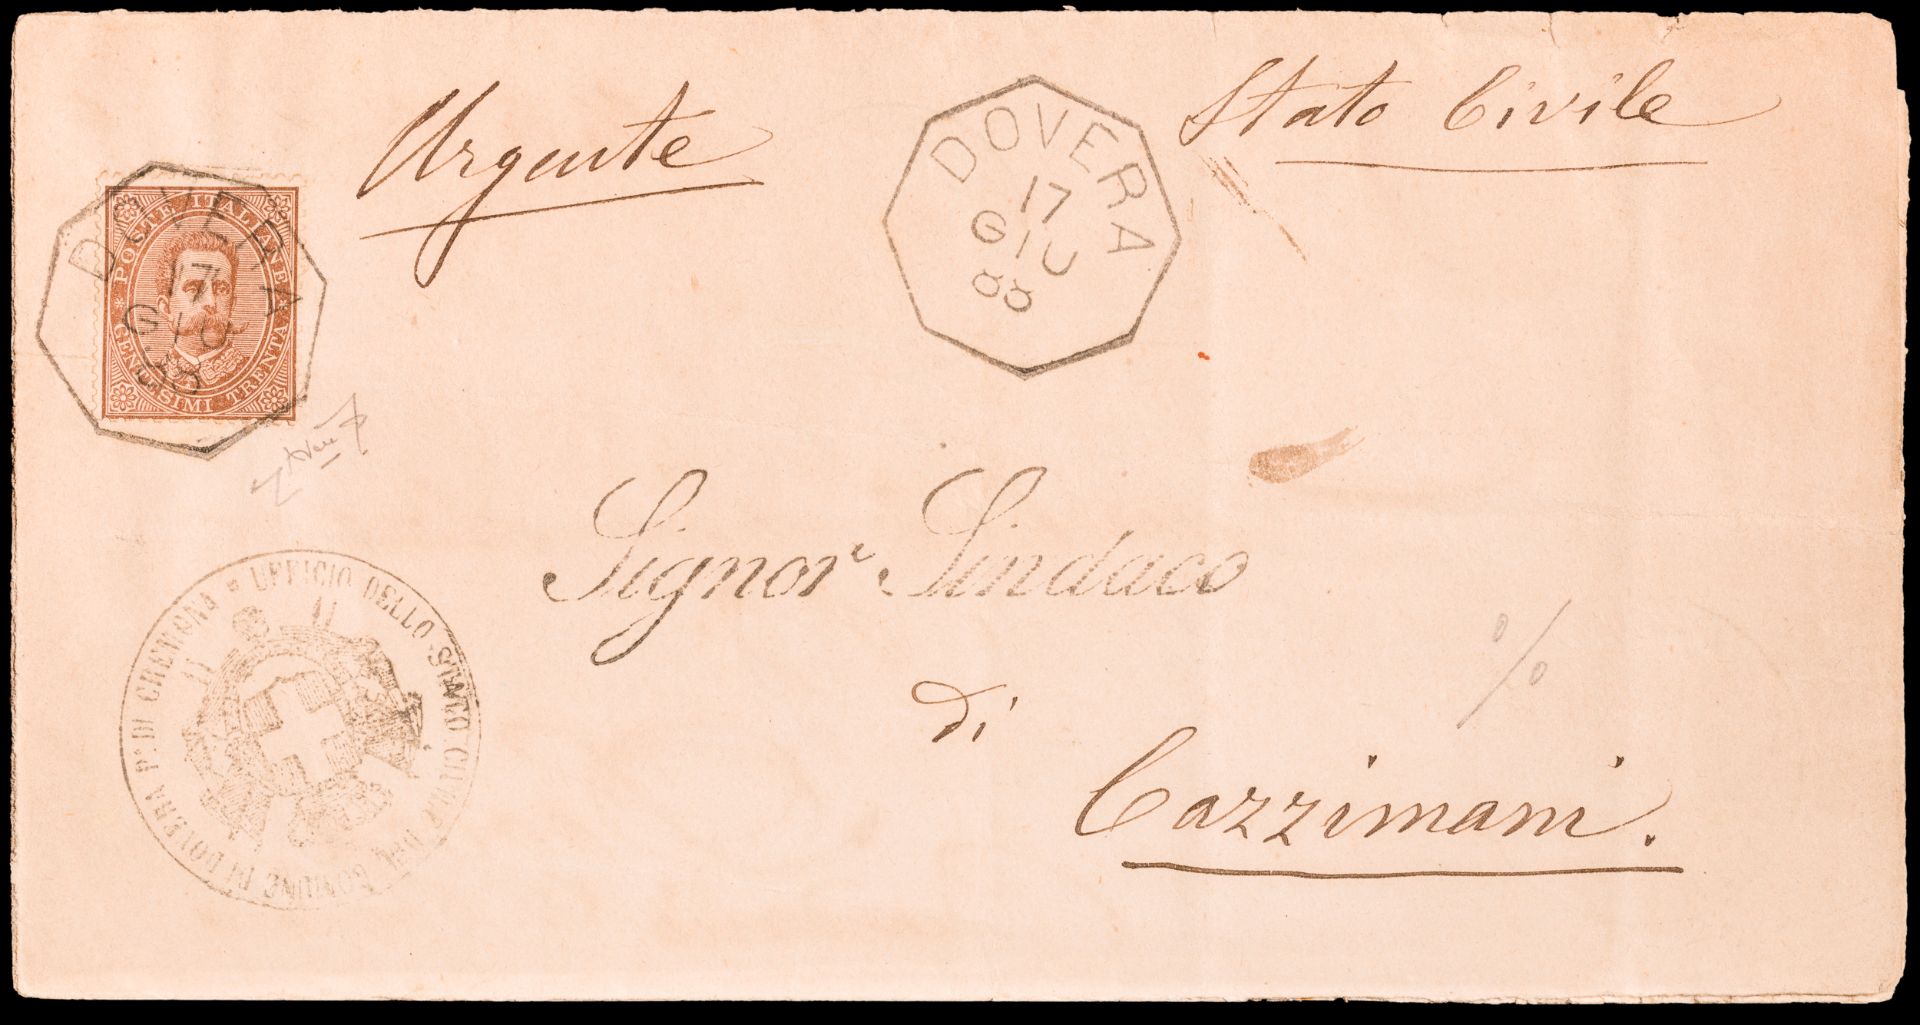 Urgente
Stato Civile
DOVERA
17
GIU
88
POSTE ITALIANE
CENTESIMI TRENTA
DOVERA
17
GIU
88
Signor Sindaco
di
Cazzimani.
UFFICIO DELLO STATO CIVILE DEL COMUNE DI DOVERA Pª. DI CREMONA
%